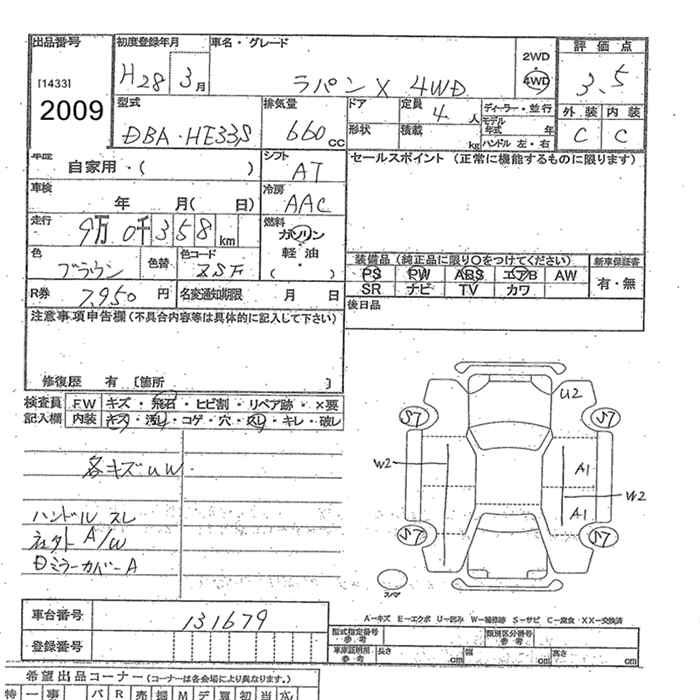 出品番号 初度登録年月 車名・グレード 評価点
[1433] H28 3月 ラパン X 4WD 2WD ・ 4WD 3.5
2009
型式 排気量 ドア 定員 4人 ディーラー・並行 外装 内装
DBA・HE33S 660cc 形状 積載 kg モデル年式 年 C C
ハンドル 左・右
車歴 自家用・( ) シフト AT セールスポイント (正常に機能するものに限ります)
車検 年 月( 日) 冷房 AAC
走行 9万0千358km 燃料 ガソリン・軽油・( )
色 ブラウン 色替 色コード ZSF
装備品 (純正品に限り〇をつけてください) 新車保証書
PS PW ABS エアB AW 有・無
SR ナビ TV カワ
R券 7,950円 名変通知期限 月 日 後日品
注意事項申告欄 (不具合内容等は具体的に記入して下さい)
修復歴 有 〔箇所 〕
検査員記入欄 FW キズ・飛石・ヒビ割・リペア跡・×要
内装 キズ・汚レ・コゲ・穴・スレ・キレ・破レ
各キズUW.
ハンドル スレ
A/W
ミラーカバーA
U2
S7 S7
W2 A1
W2
A1
S7 S7
スノマ
A-キズ E-エクボ U-凹み W-補修跡 S-サビ C-腐食 ・XX-交換済
車台番号 131679
登録番号
型式指定番号 参考 類別区分番号 参考
車庫証明用 参考 長さ cm 幅 cm 高さ cm
希望出品コーナー (コーナーは各会場により異なります。)